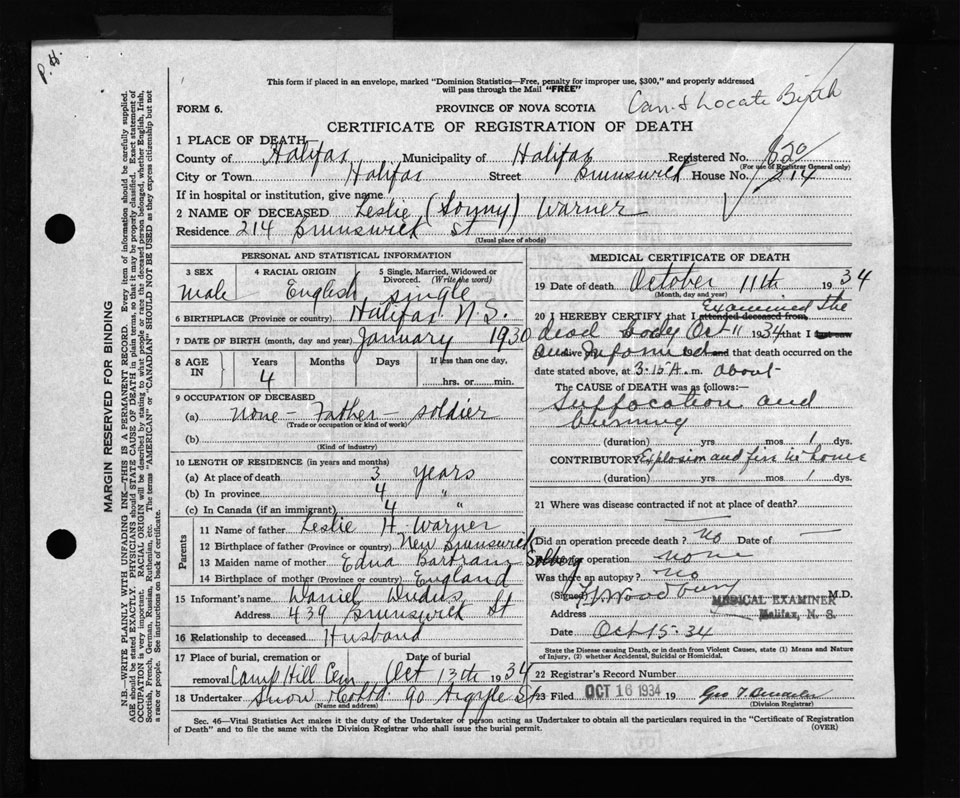 P. H.
This form if placed in an envelope, marked "Dominion Statistics—Free, penalty for improper use, $300," and properly addressed
will pass through the Mail "FREE"
FORM 6.
PROVINCE OF NOVA SCOTIA
Can't Locate Birth
CERTIFICATE OF REGISTRATION OF DEATH
1 PLACE OF DEATH
County of Halifax Municipality of Halifax Registered No. 820
(For use of Registrar General only)
City or Town Halifax Street Brunswick House No. 214
If in hospital or institution, give name
2 NAME OF DECEASED Leslie (Sonny) Warner
Residence 214 Brunswick St
(Usual place of abode)
PERSONAL AND STATISTICAL INFORMATION
3 SEX 4 RACIAL ORIGIN 5 Single, Married, Widowed or
Divorced. (Write the word)
Male English single
6 BIRTHPLACE (Province or country) Halifax N.S.
7 DATE OF BIRTH (month, day and year) January 1930
8 AGE IN Years Months Days If less than one day,
4 hrs. or min.
9 OCCUPATION OF DECEASED
(a) None - Father - soldier
(Trade or occupation or kind of work)
(b)
(Kind of industry)
10 LENGTH OF RESIDENCE (in years and months)
(a) At place of death 3 years
(b) In province 4 "
(c) In Canada (if an immigrant) 4 "
Parents
11 Name of father Leslie H. Warner
12 Birthplace of father (Province or country) New Brunswick
13 Maiden name of mother Edna Solberg
14 Birthplace of mother (Province or country) England
15 Informant's name Daniel
Address 439 Brunswick St
16 Relationship to deceased Husband
17 Place of burial, cremation or Date of burial
removal Camp Hill Cem Oct 13th 1934
18 Undertaker Snow & Co Ltd 90 Argyle St
(Name and address)
MEDICAL CERTIFICATE OF DEATH
19 Date of death October 11th 1934
(Month, day and year)
20 I HEREBY CERTIFY that I attended deceased from Examined the
dead body Oct 11 1934 that I last saw
alive and that death occurred on the
date stated above, at 3.15 A.m. about
The CAUSE OF DEATH was as follows:—
Suffocation and
burning
(duration) yrs mos 1 dys.
CONTRIBUTORY Explosion and fire in house
(duration) yrs mos 1 dys.
21 Where was disease contracted if not at place of death?
Did an operation precede death? No Date of —
State for operation none
Was there an autopsy? No
(Signed) Woodbury M.D.
MEDICAL EXAMINER
Address Halifax, N. S.
Date Oct 15-34
State the Disease causing Death, or in death from Violent Causes, state (1) Means and Nature
of Injury, (2) whether Accidental, Suicidal or Homicidal.
22 Registrar's Record Number
23 Filed OCT 16 1934 19
(Division Registrar)
Sec. 46—Vital Statistics Act makes it the duty of the Undertaker or person acting as Undertaker to obtain all the particulars required in the "Certificate of Registration
of Death" and to file the same with the Division Registrar who shall issue the burial permit.
(OVER)
MARGIN RESERVED FOR BINDING
N.B.—WRITE PLAINLY WITH UNFADING INK—THIS IS A PERMANENT RECORD. Every item of information should be carefully supplied.
AGE should be stated EXACTLY. PHYSICIANS should STATE CAUSE OF DEATH in plain terms, so that it may be properly classified. Exact statement of
OCCUPATION is very important. RACIAL ORIGIN will be described by stating to what people or race the deceased person belonged, whether English, Irish,
Scottish, French, German, Russian, Ruthenian, etc. The terms "AMERICAN" or "CANADIAN" SHOULD NOT BE USED as they express citizenship but not
a race or people. See instructions on back of certificate.